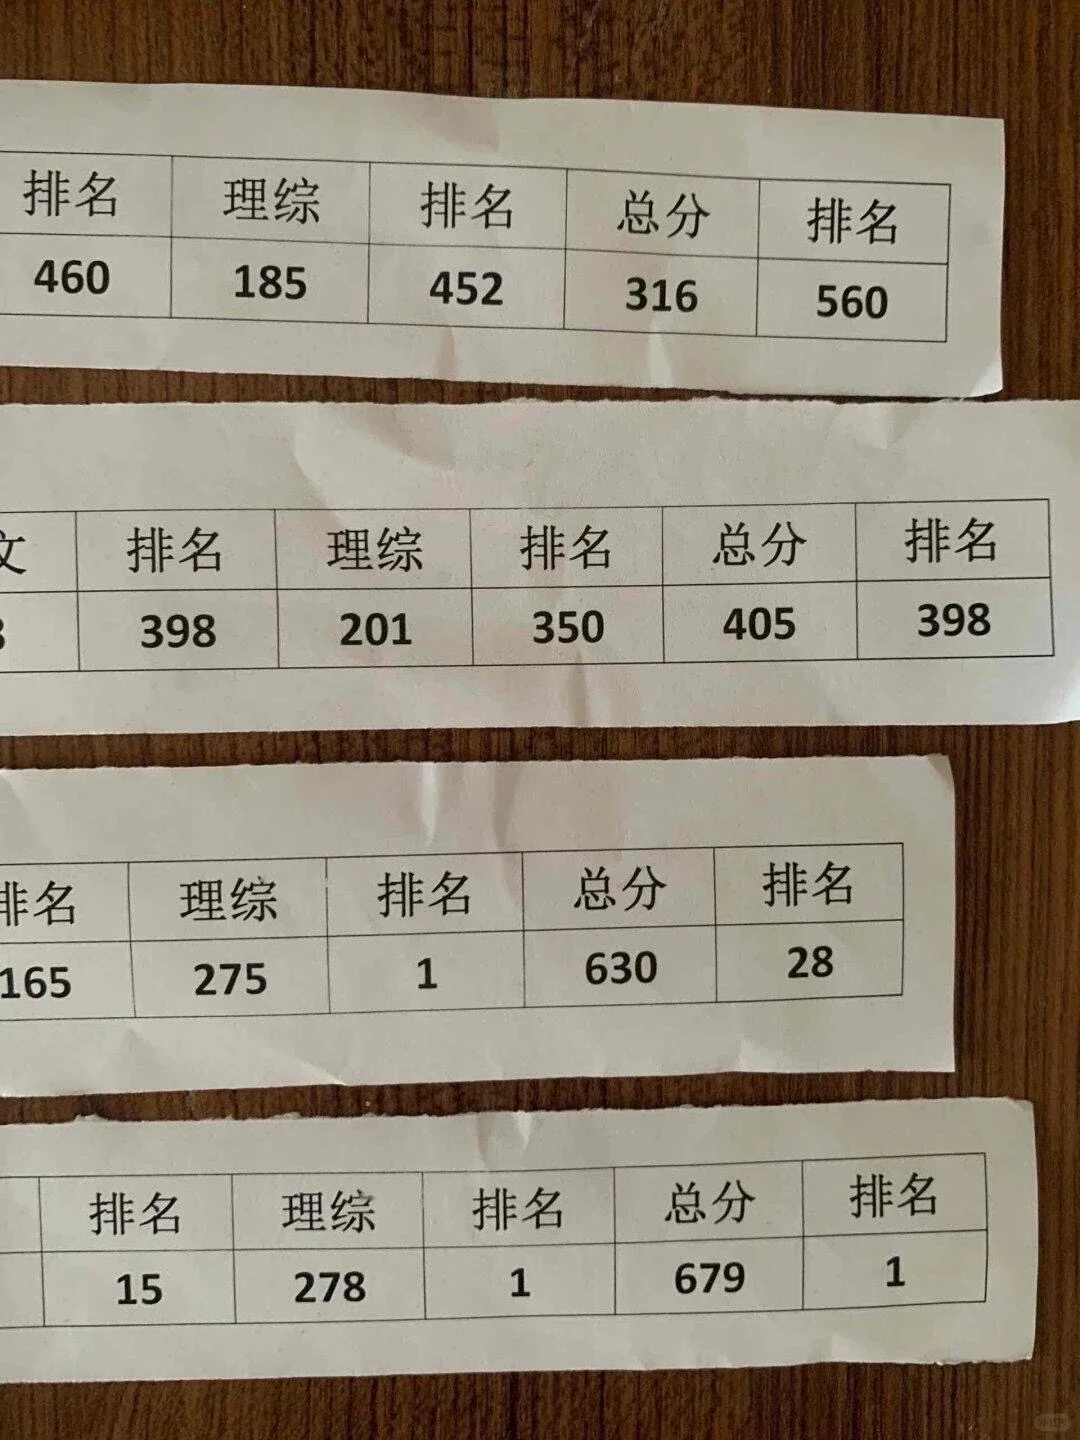 排名 理综 排名 总分 排名
460 185 452 316 560
文 排名 理综 排名 总分 排名
398 201 350 405 398
排名 理综 排名 总分 排名
165 275 1 630 28
排名 理综 排名 总分 排名
15 278 1 679 1